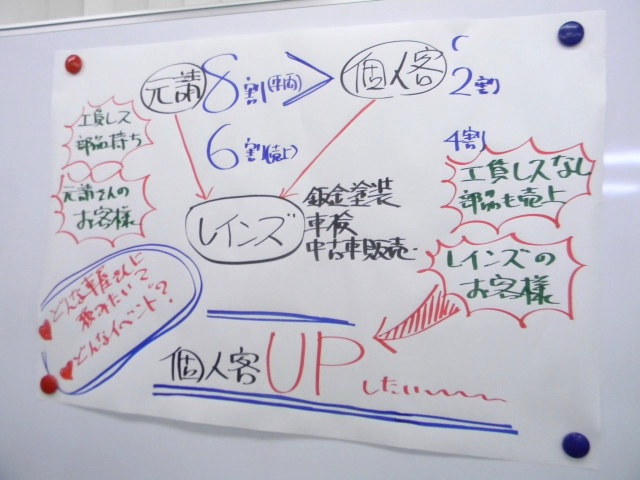 元請 8割(車両) > 個人客 2割
6割(売上)
4割
工賃レス
部品持ち
元請さんの
お客様
工賃レスなし
部品も売上
レインズ
鈑金塗装
車検
中古車販売
レインズの
お客様
どんな車屋さんに
頼みたいで
どんなイベント?
個人客UPしたい